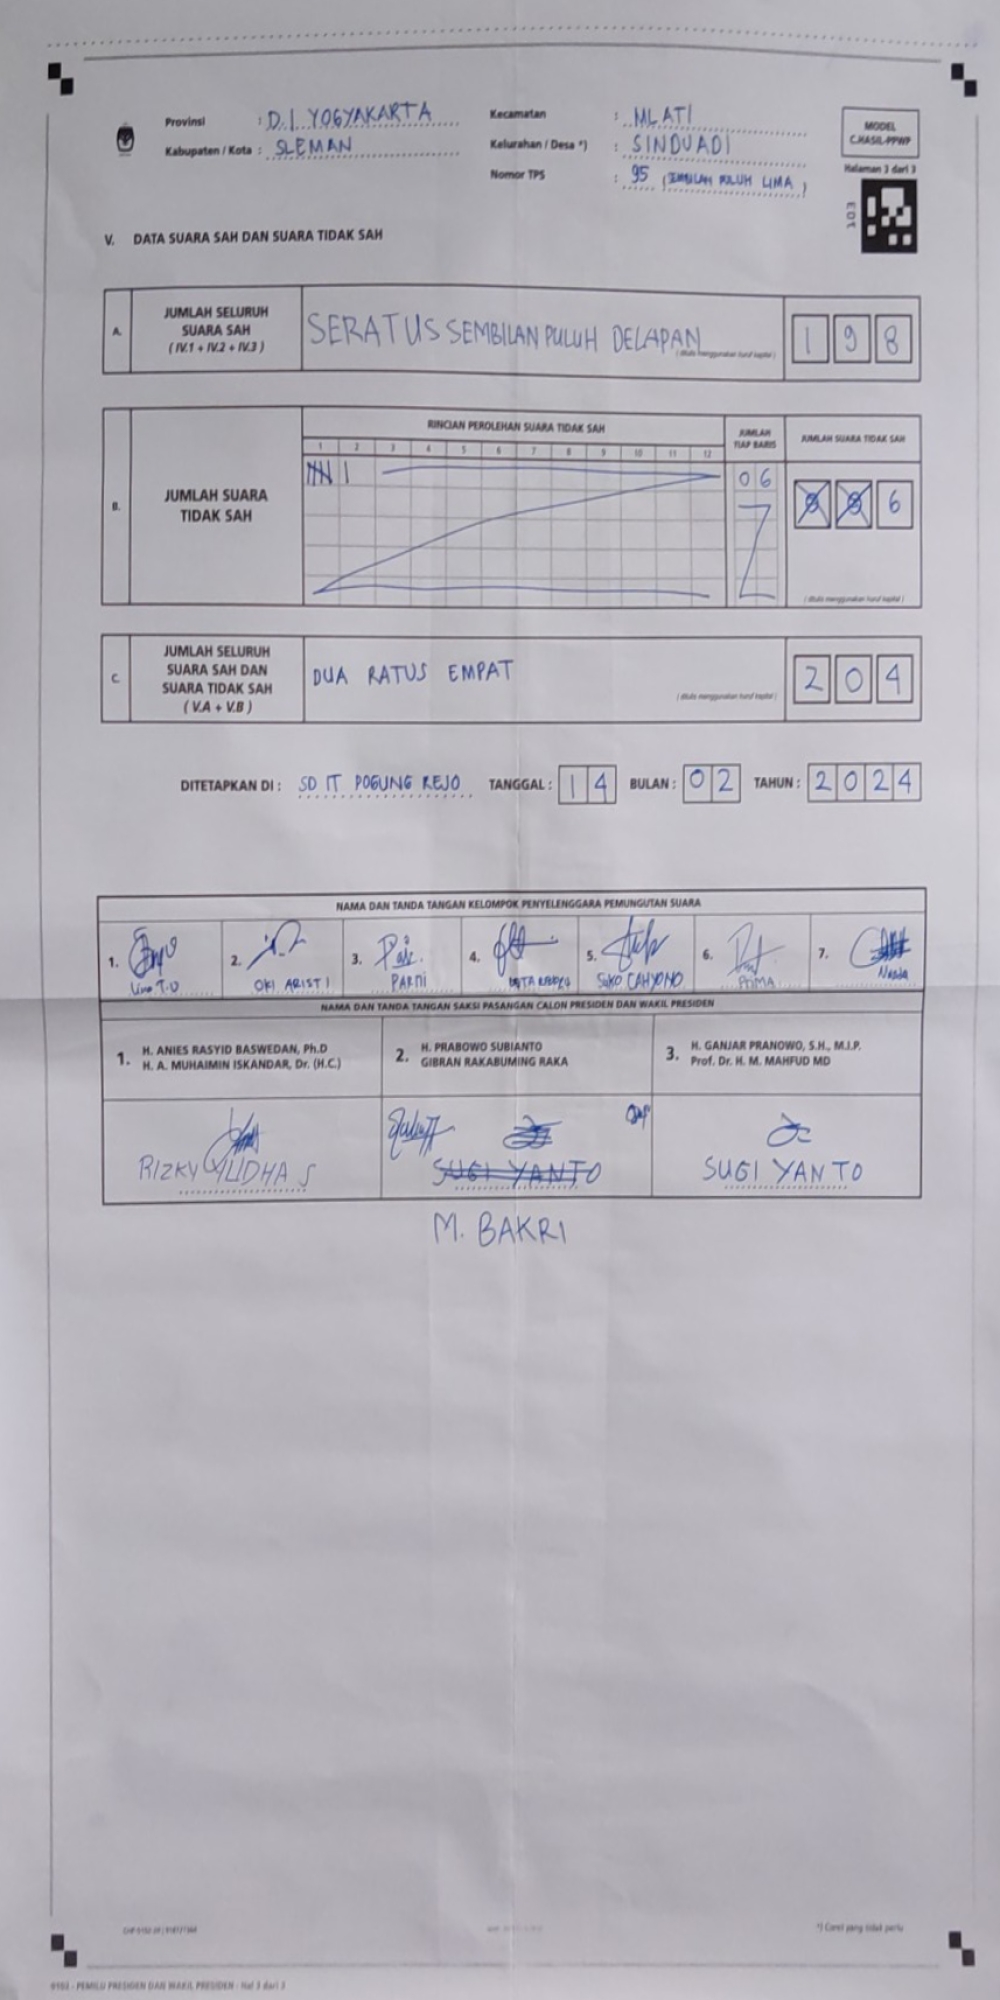 Provinsi : D.I. YOGYAKARTA
Kabupaten / Kota : SLEMAN
Kecamatan : MLATI
Kelurahan / Desa *) : SINDUADI
Nomor TPS : 95 ( PULUH LIMA )
MODEL
C.HASIL-PPWP
Halaman 3 dari 3
V. DATA SUARA SAH DAN SUARA TIDAK SAH
A. JUMLAH SELURUH
SUARA SAH
( IV.1 + IV.2 + IV.3 )
SERATUS SEMBILAN PULUH DELAPAN
( ditulis menggunakan huruf kapital )
1 9 8
B. JUMLAH SUARA
TIDAK SAH
RINCIAN PEROLEHAN SUARA TIDAK SAH
1 2 3 4 5 6 7 8 9 10 11 12
JUMLAH
TIAP BARIS
06
JUMLAH SUARA TIDAK SAH
6
( ditulis menggunakan huruf kapital )
C. JUMLAH SELURUH
SUARA SAH DAN
SUARA TIDAK SAH
( V.A + V.B )
DUA RATUS EMPAT
( ditulis menggunakan huruf kapital )
2 0 4
DITETAPKAN DI : SD IT POGUNG REJO TANGGAL : 14 BULAN : 02 TAHUN : 2024
NAMA DAN TANDA TANGAN KELOMPOK PENYELENGGARA PEMUNGUTAN SUARA
1. 2. 3. 4. 5. 6. 7.
OKI ARISTI PARNI SUKO CAHYONO PRIMA
NAMA DAN TANDA TANGAN SAKSI PASANGAN CALON PRESIDEN DAN WAKIL PRESIDEN
1. H. ANIES RASYID BASWEDAN, Ph.D
H. A. MUHAIMIN ISKANDAR, Dr. (H.C.)
2. H. PRABOWO SUBIANTO
GIBRAN RAKABUMING RAKA
3. H. GANJAR PRANOWO, S.H., M.I.P.
Prof. Dr. H. M. MAHFUD MD
RIZKY YUDHA S
SUGI YANTO
SUGI YANTO
M. BAKRI
*) Coret yang tidak perlu
- PEMILU PRESIDEN DAN WAKIL PRESIDEN - Hal 3 dari 3